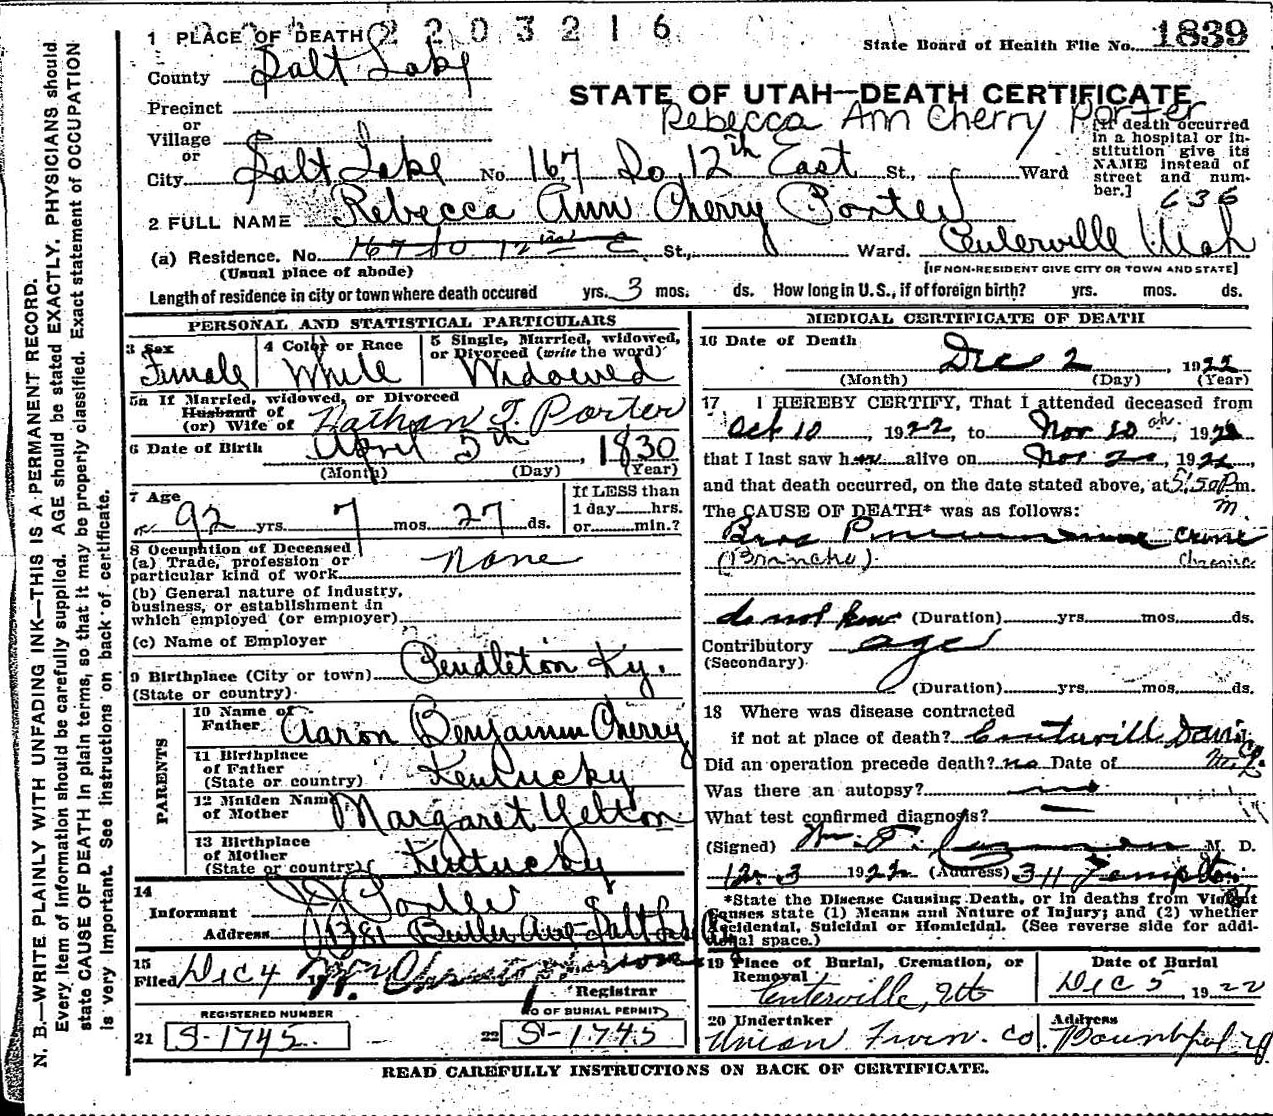 1 PLACE OF DEATH 2203216
State Board of Health File No. 1839
County Salt Lake
STATE OF UTAH—DEATH CERTIFICATE
Precinct
Rebecca Ann Cherry Porter
or
Village
or
City Salt Lake No. 167 So. 12th East St., Ward
[If death occurred in a hospital or institution give its NAME instead of street and number.]
636
2 FULL NAME Rebecca Ann Cherry Porter
(a) Residence. No. 167 So 12 E St., Ward. Centerville Utah
(Usual place of abode) [IF NON-RESIDENT GIVE CITY OR TOWN AND STATE]
Length of residence in city or town where death occured yrs. 3 mos. ds. How long in U.S., if of foreign birth? yrs. mos. ds.
PERSONAL AND STATISTICAL PARTICULARS
3 Sex Female
4 Color or Race White
5 Single, Married, Widowed, or Divorced (write the word) Widowed
5a If Married, widowed, or Divorced
Husband of
(or) Wife of Nathan T. Porter
6 Date of Birth April 5th, 1830
(Month) (Day) (Year)
7 Age 92 yrs. 7 mos. 27 ds.
If LESS than
1 day hrs.
or min.?
8 Occuption of Deceased
(a) Trade, profession or
particular kind of work None
(b) General nature of Industry,
business, or establishment in
which employed (or employer)
(c) Name of Employer
9 Birthplace (City or town) Pendleton Ky.
(State or country)
PARENTS
10 Name of
Father Aaron Benjamin Cherry
11 Birthplace
of Father
(State or country) Kentucky
12 Maiden Name
of Mother Margaret Yelton
13 Birthplace
of Mother
(State or country) Kentucky
14
Informant J. J. Porter
Address Butler Ave Salt Lake
15
Filed Dec 4
Registrar
REGISTERED NUMBER
21 S-1745
NO OF BURIAL PERMIT
22 S-1745
MEDICAL CERTIFICATE OF DEATH
16 Date of Death Dec 2, 1922
(Month) (Day) (Year)
17 I HEREBY CERTIFY, That I attended deceased from
Oct 10, 1922, to Nov, 192
that I last saw her alive on Nov, 192
and that death occurred, on the date stated above, at 5:50 P m.
m.
The CAUSE OF DEATH* was as follows:
(Broncho) Chronic
do not know (Duration) yrs. mos. ds.
Contributory age
(Secondary)
(Duration) yrs. mos. ds.
18 Where was disease contracted
if not at place of death? Centerville Davis Co
Did an operation precede death? no Date of
Was there an autopsy? no
What test confirmed diagnosis?
(Signed) M. D.
12-3 1922 (Address) 311 Templeton
*State the Disease Causing Death, or in deaths from Violent
Causes state (1) Means and Nature of Injury; and (2) whether
Accidental, Suicidal or Homicidal. (See reverse side for addi-
tional space.)
19 Place of Burial, Cremation, or
Removal Centerville, Ut
Date of Burial
Dec 5 1922
20 Undertaker
Union Furn. Co.
Address
Bountiful
READ CAREFULLY INSTRUCTIONS ON BACK OF CERTIFICATE.
N. B.—WRITE PLAINLY WITH UNFADING INK—THIS IS A PERMANENT RECORD.
Every item of Information should be carefully supplied. AGE should be stated EXACTLY. PHYSICIANS should
state CAUSE OF DEATH in plain terms, so that it may be properly classified. Exact statement of OCCUPATION
is very important. See instructions on back of certificate.